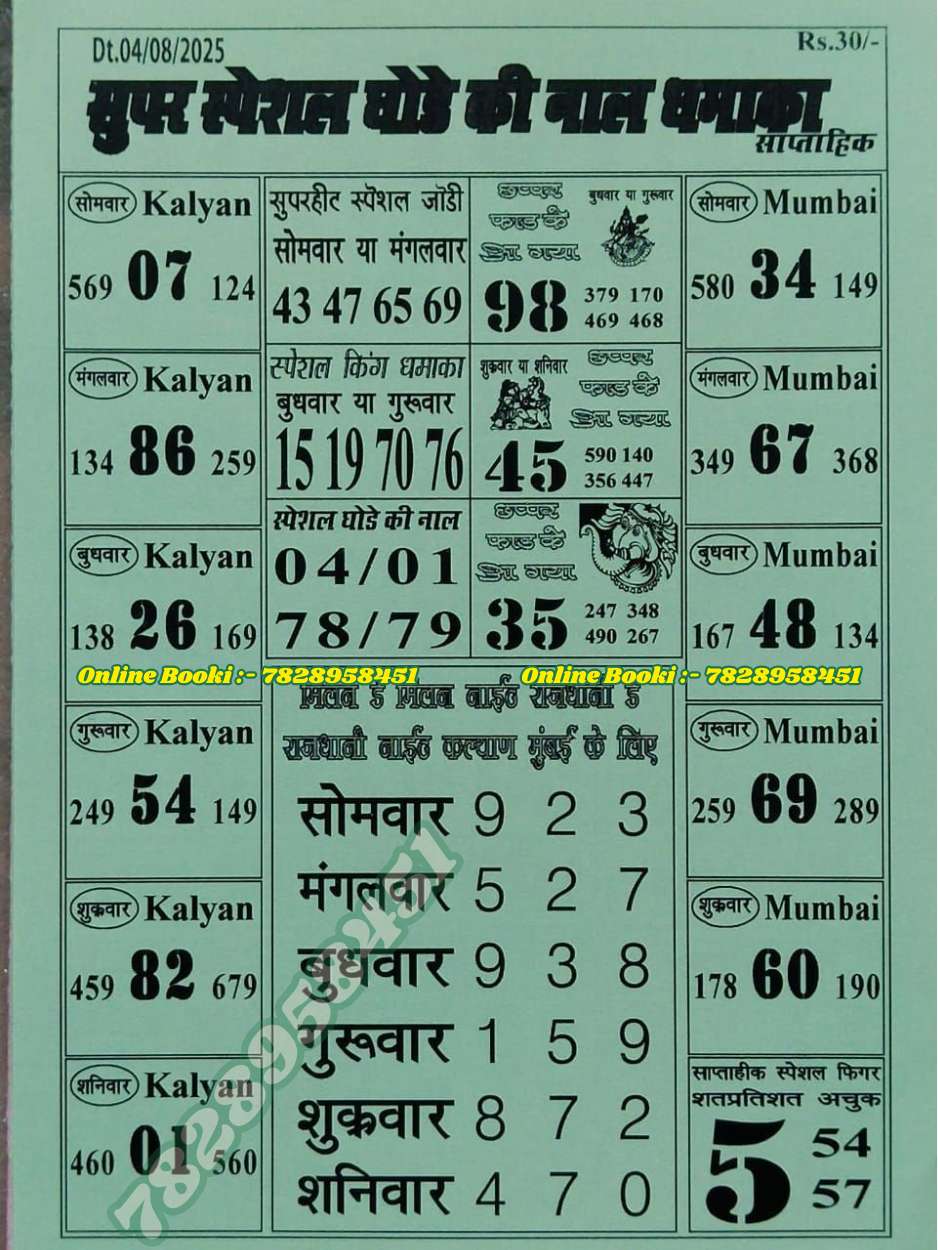 Dt.04/08/2025
Rs.30/-
सुपर स्पेशल घोडे की नाल धमाका
साप्ताहिक
सोमवार Kalyan
569 07 124
मंगलवार Kalyan
134 86 259
बुधवार Kalyan
138 26 169
गुरुवार Kalyan
249 54 149
शुक्रवार Kalyan
459 82 679
शनिवार Kalyan
460 01 560
सुपरहीट स्पेशल जोडी
सोमवार या मंगलवार
43 47 65 69
स्पेशल किंग धमाका
बुधवार या गुरूवार
15 19 70 76
स्पेशल घोडे की नाल
04/01
78/79
छप्पर
फाड के
आ गया
बुधवार या गुरूवार
98
379 170
469 468
शुक्रवार या शनिवार
छप्पर
फाड के
आ गया
45
590 140
356 447
छप्पर
फाड के
आ गया
35
247 348
490 267
सोमवार Mumbai
580 34 149
मंगलवार Mumbai
349 67 368
बुधवार Mumbai
167 48 134
गुरुवार Mumbai
259 69 289
शुक्रवार Mumbai
178 60 190
Online Booki :- 7828958451
Online Booki :- 7828958451
मिलन डे मिलन नाईट राजधानी डे
राजधानी नाईट कल्याण मुंबई के लिए
सोमवार 9 2 3
मंगलवार 5 2 7
बुधवार 9 3 8
गुरूवार 1 5 9
शुक्रवार 8 7 2
शनिवार 4 7 0
साप्ताहीक स्पेशल फिगर
शतप्रतिशत अचुक
5
54
57
7828958451